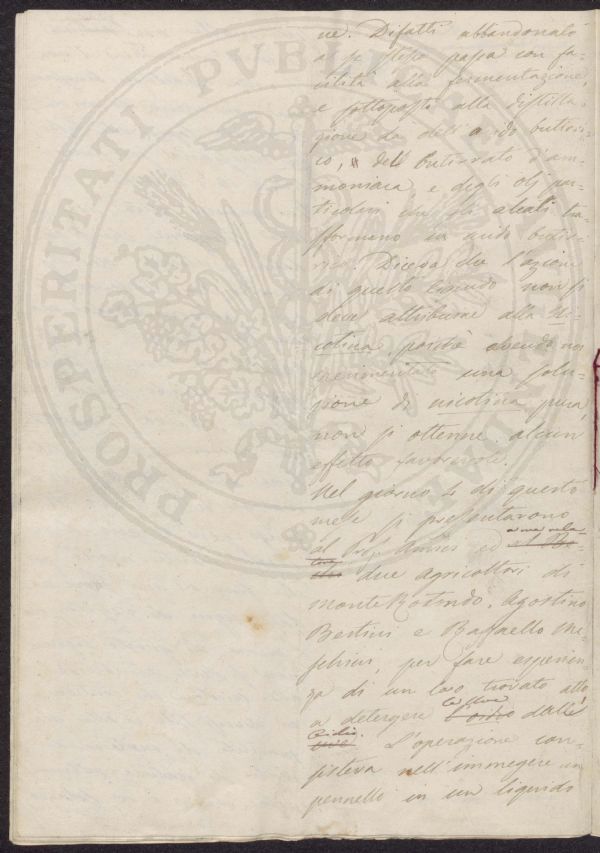 PROSPERITATI PVBLICAE
ne. Difatti abbandonato
a se stesso passa con fa-
cilità alla fermentazione,
e sottoposto alla distilla-
zione da dell'acido butirri-
co, del butirrato d'am-
moniaca e degli olj par-
ticolari che gli alcali tra-
sformano in acido butir-
rico. Diceva che l'azione
di questo liquido non si
deve attribuire alla ni-
cotina, poichè avendo noi
sperimentato una solu-
zione di nicotina pura,
non si ottenne alcun
effetto favorevole.
Nel giorno 4 di questo
mese si presentarono
al Prof. Amici ed a me rela-
tore due agricoltori di
Monte Rotondo, Agostino
Bertini e Raffaello Mi-
chelini, per fare esperien-
za di un loro trovato atto
a detergere le uve dalle
l'oidio
L'operazione con-
sisteva nell'immergere un
pennello in un liquido